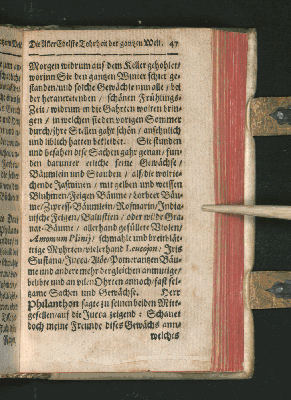 Die Aller Edelste Tohrheit der gantzen Welt. 47
Morgen widrum auf dem Keller gehohlet/
worinn Sie den gantzen Winter schier ge-
standen/und solche Gewächse nun alle / bei
der herannetenden / schönen Frühlings-
Zeit / widrum in die Gahrten wolten brin-
gen / in welchen sie den vorigen Sommer
durch/ihre Stellen gaht schön / ansehnlich
und liblich hatten bekleidet. Sie stunden
und besahen dise Sachen gahr genau/ fun-
den darunter etliche feine Gewächse/
Bäumlein und Stauden / alß die wolrie-
chende Jasminen / mit gelben und weissen
Bluhmen/Feigen Bäume / Lorbeer Bäu-
me/Zypreß-Bäumlein/Rosmarin/India-
nische Feigen/Balustien / oder wilde Gra-
nat-Bäume / allerhand gefüllete Violen/
Amomum Plinij/ schmahle und breitblät-
trige Muhrten/vielerhand Leucojon/ Iris
Susiana/Jucca Aloë/Pomerantzen Bäu-
me und andere mehr dergleichen anmutige/
beliebte und an vilen Ohrten annoch/fast sel-
zame Sachen und Gewächse. Herr
Philanthon sagte zu seinen beiden Mit-
gesellen/auf die Jucca zeigend: Schauet
doch meine Freunde dises Gewächs anno
welches